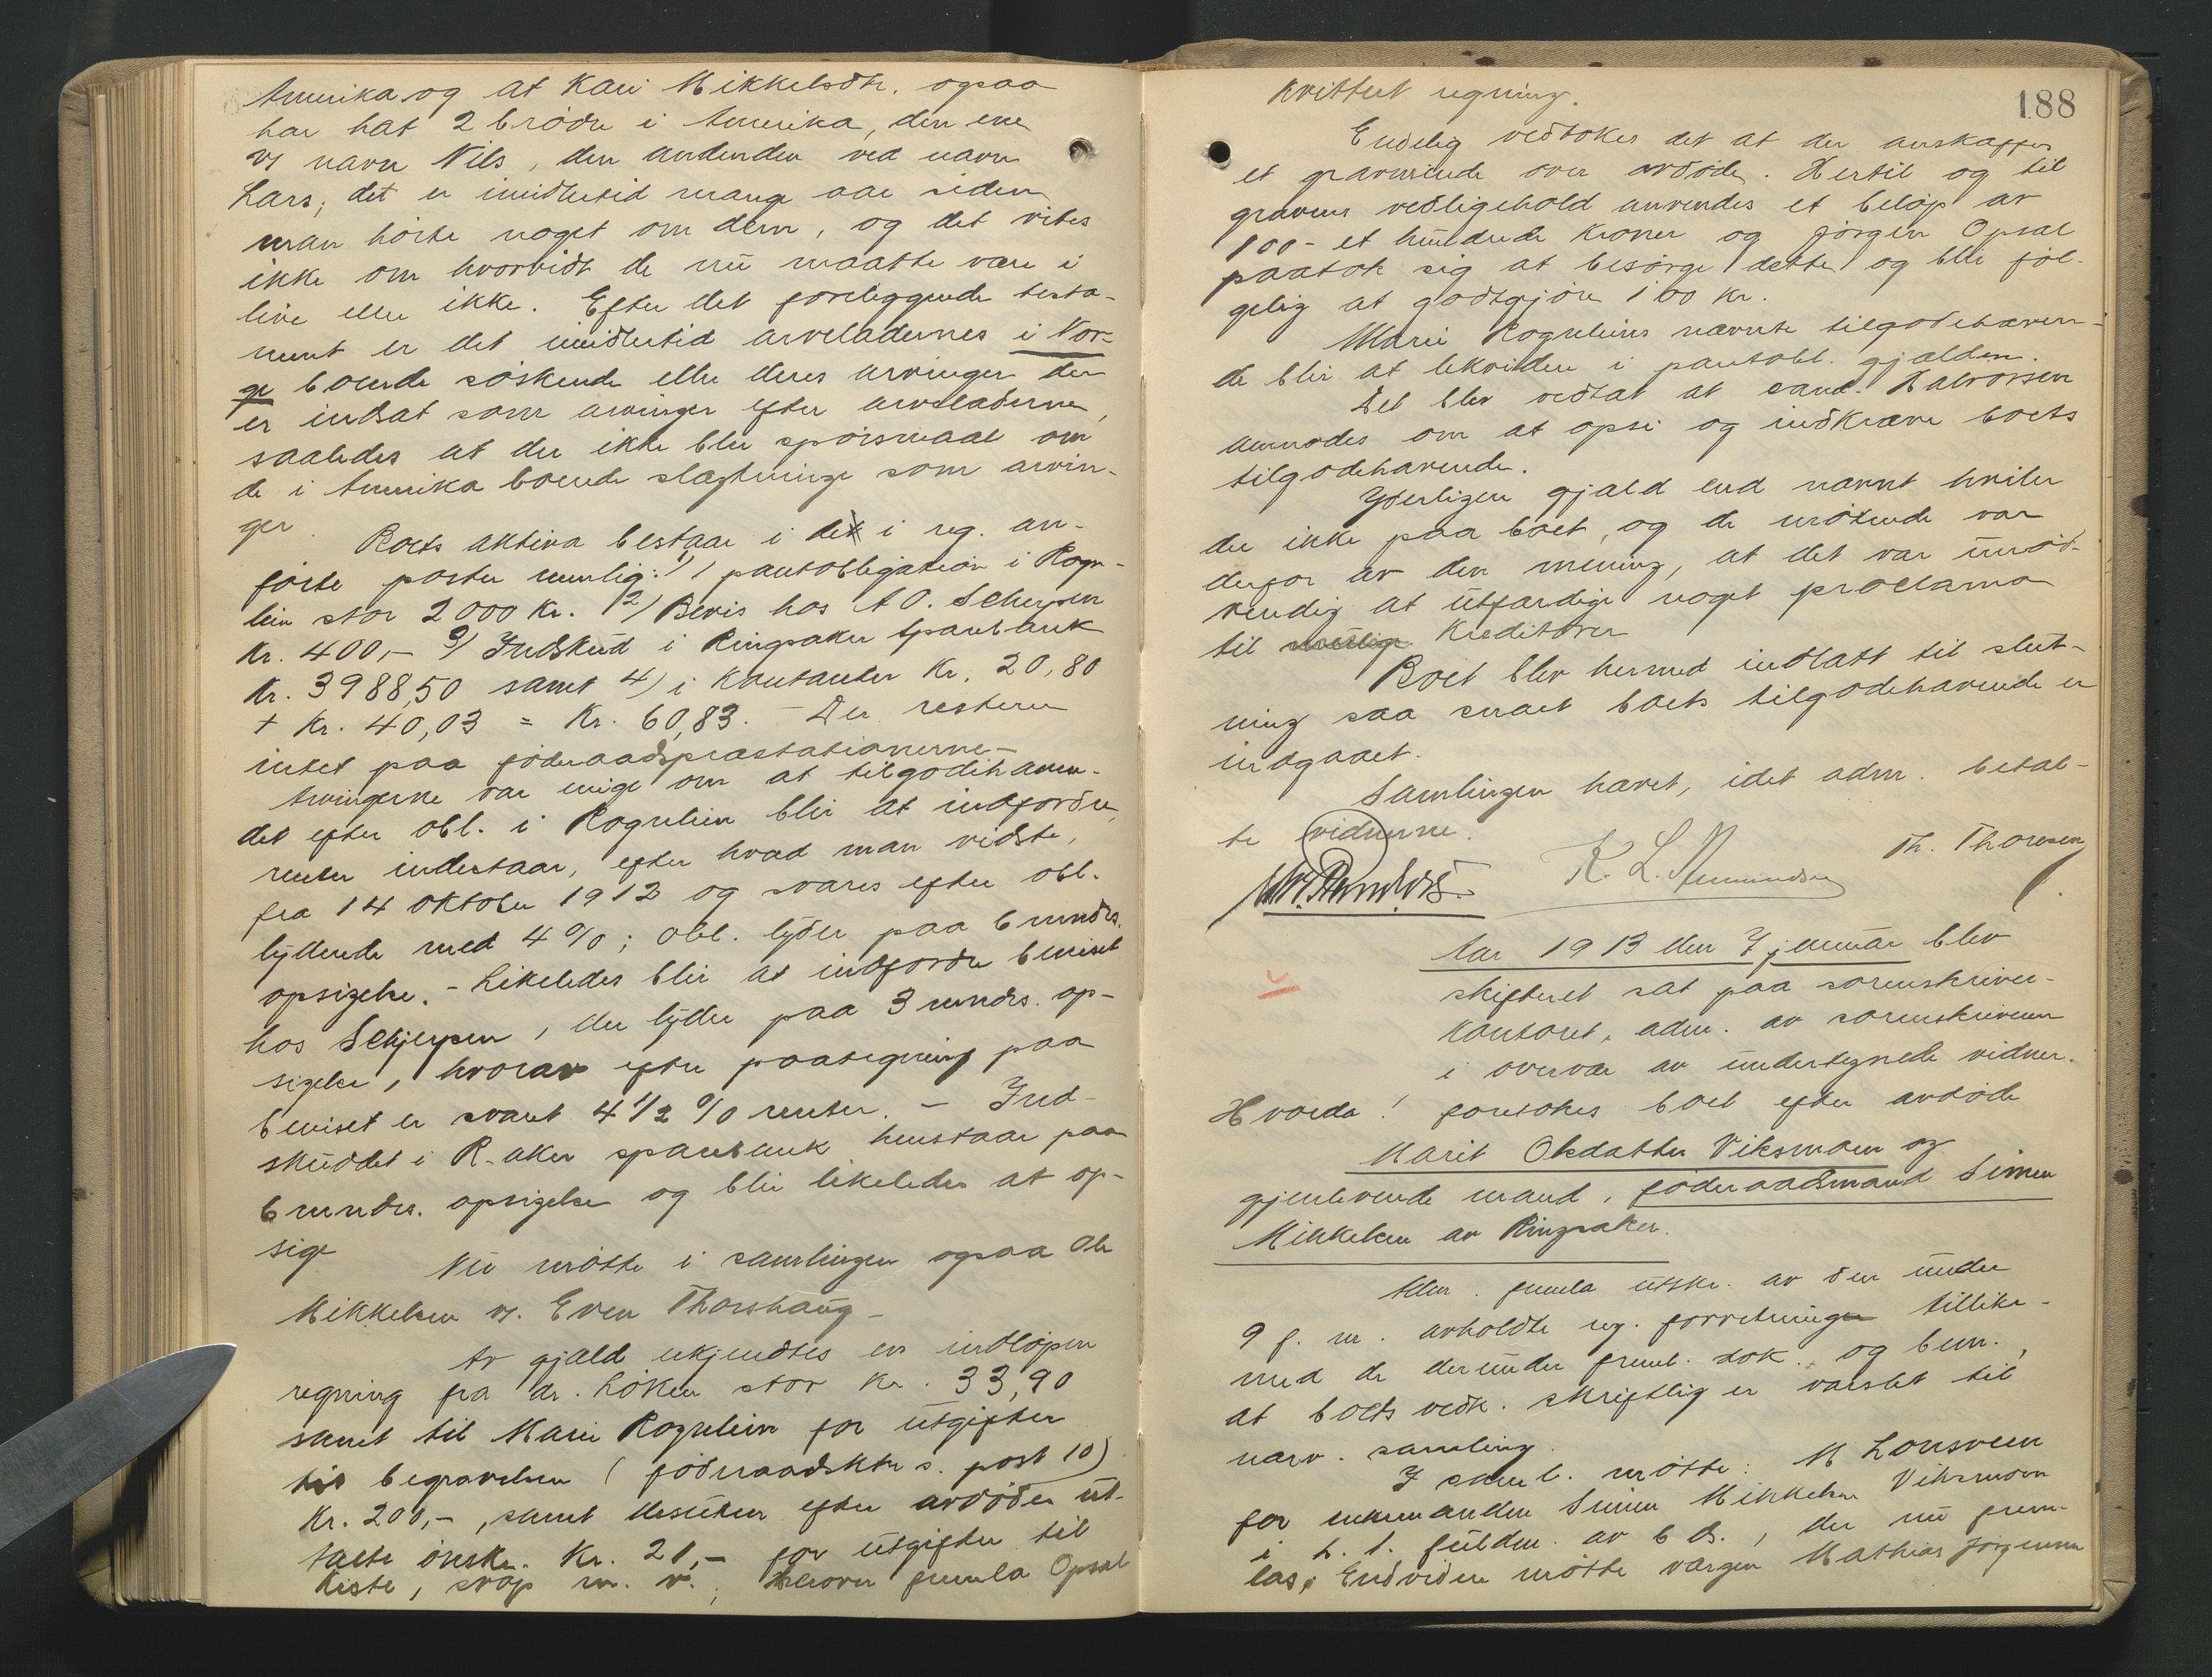 Amerika og at Kari Mikkelsdtr. ogsaa
har hat 2 brödre i Amerika, den ene
v/ navn Nils, den andenden ved navn
Lars; det er imidlertid mange aar siden
man hörte noget om dem, og det vites
ikke om hvorvidt de nu maatte være i
live eller ikke. Efter det foreliggende testa-
ment er det imidlertid arveladernes i Nor-
ge boende söskende eller deres arvinger der
er indsat som arvinger efter arveladerne,
saaledes at der ikke blir spörsmaal om
de i Amerika boende slægtninge som arvin-
ger.
Boets aktiva bestaar i det i reg. an-
förte poster nemlig: 1/ pantobligation i Rogn-
lien stor 2000 kr. 2/ Bevis hos A O. Schjerpen
kr. 400,- 3/ Indskud i Ringsaker Sparebank
kr. 3988,50 samt 4/ i kontanter kr. 20,80
+ kr. 40,03 = kr. 60,83. - Der resterer
intet paa föderaadspræstationerne -
Arvingerne var enige om at tilgodehaven-
det efter obl. i Rognlien blir at indfordre,
renter indestaar, efter hvad man vidste,
fra 14 oktober 1912 og svares efter obl.
lydende med 4 %; obl. lyder paa 6 mndrs.
opsigelse. - Likeledes blir at indfordre beviset
hos Schjerpen, der lyder paa 3 mndrs. op-
sigelse, hvorav efter paategning paa
beviset er svaret 4 1/2 % renter. - Ind-
skuddet i R-aker sparebank henstaar paa
6 mndrs. opsigelse og blir likeledes at op-
sige
Nu mötte i samlingen ogsaa Ole
Mikkelsen v. Even Thorshaug -
Av gjæld erkjendtes en indlöpen
regning fra dr. Löken stor kr. 33,90
samt til Mari Rognlien for utgifter
til begravelsen (föderaadsktr s. post 10)
kr. 200,-, samt desuten efter avdödes ut-
talte önske. kr. 21,- for utgifter til
kiste, svöp m. v., herover fremla Opsal
188
kvittert regning.
Endelig vedtokes det at der anskaffes
et gravminde over avdöde. Hertil og til
gravens vedligehold anvendes et belöp av
100 - et hundrede kroner og Jörgen Opsal
paatok sig at besörge dette og blir föl-
gelig at godtgjöre 100 kr.
Mari Rognliens nævnte tilgodehaven-
de blir at likvidere i pantobl. gjælden.
Det blev vedtat at cand. Halvorsen
anmodes om at opsi og indkræve boets
tilgodehavende.
Yderligere gjæld end nævnt hviler
der ikke paa boet, og de mötende var
derfor av den mening, at det var unöd-
vendig at utfærdige noget proclama
til kreditorer
Boet blev hermed indlatt til slut-
ning saa snart boets tilgodehavende er
indgaaet.
Samlingen hævet, idet adm. betal-
te vidnerne.
Th. Thoresen
K. L. Amundsen
Aar 1913 den 7 januar blev
skifteret sat paa sorenskriver-
kontoret, adm. av sorenskriveren
i overvær av undertegnede vidner.
Hvorda! foretokes boet efter avdöde
Marit Olsdatter Viksmoen og
gjenlevende mand, föderaadsmand Simen
Mikkelsen av Ringsaker.
Adm. fremla utskr. av den under
9 f. m. avholdte reg. forretning tillike-
med de derunder freml. dok. og bem.,
at boets vedk. skriftlig er varslet til
nærv. samling.
I saml. mötte: M Lonsveen
for enkemanden Simen Mikkelsen Viksmoen
i h. t. fuldm. av 6 ds., der nu frem-
las, Endvidere mötte værgen Mathias Jörgensen